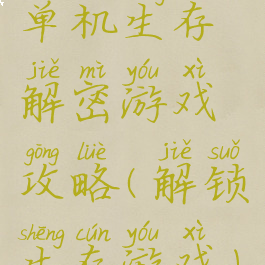 单机生存
jiě mì yóu xì
解密游戏
gōng lüè jiě suǒ
攻略(解锁
shēng cún yóu xì
生存游戏)